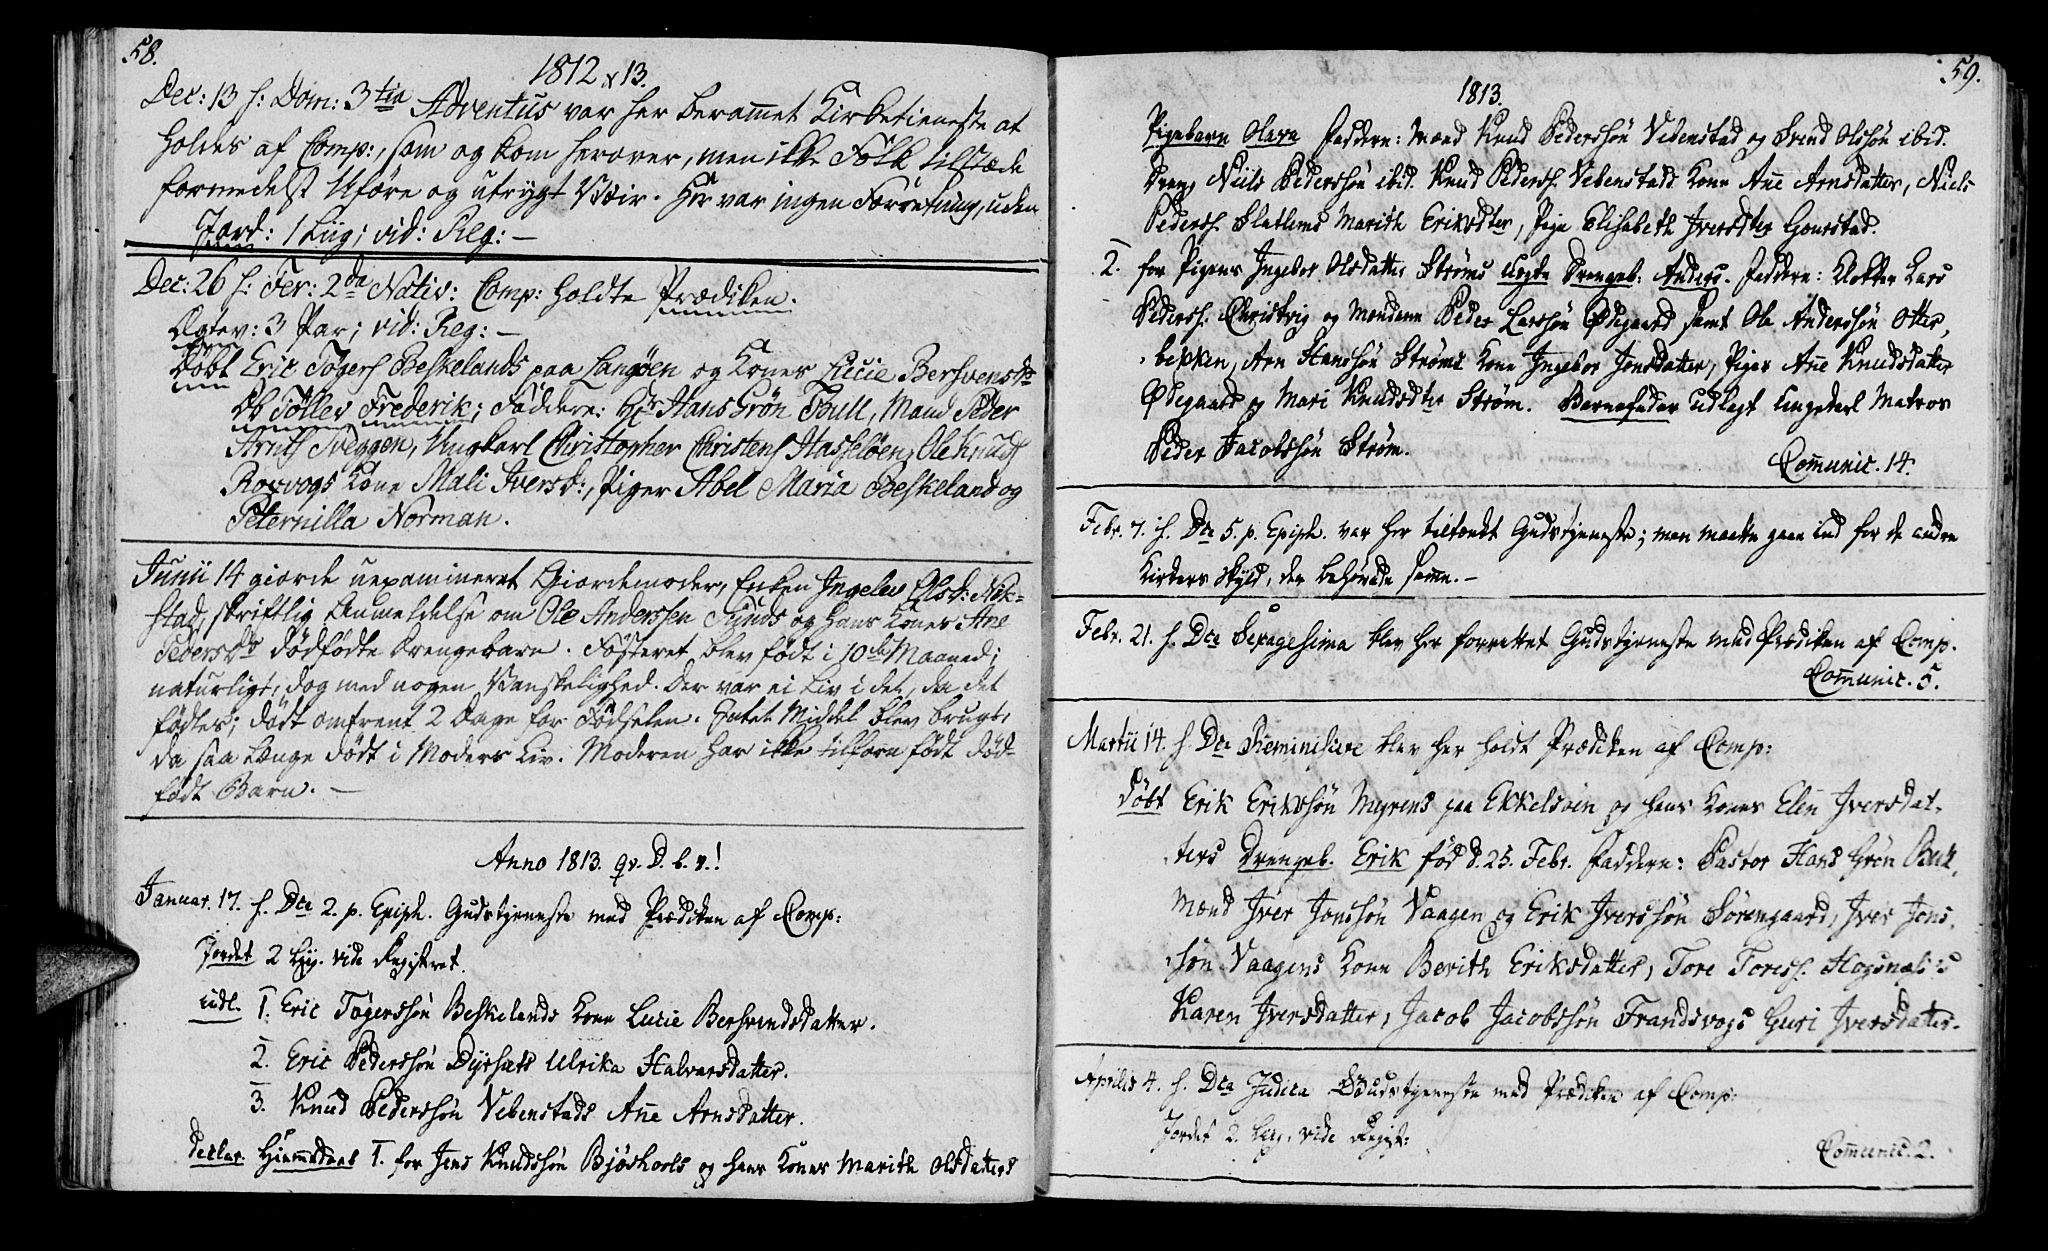 58.
1812 & 13.
Dec: 13 s: Dom: 3tia Adventus var her beramet Kirketieneste at
holdes af Comp:, som og kom herover, men ikke Folk tilstæde
formedelst Uføre og utrygt Veir. Her var ingen Forretning, uden
Jord: 1 Liig; vid: Reg: —
Dec: 26 s: Fer: 2da Nativ: Comp: holdte Prædiken.
Ægtev: 3 Par; vid: Reg: —
Døbt Eric Togers Beskelands paa Langøen og Kones Lucie Bersvensdr
Db Töller Frederik; Faddere: Hr Hans Grøn Bull, Mand Peder
Arnts Sveggen, Ungkarl Christopher Christens Hasseløen, Ole Knuds
Roxvogs Kone Mali Iversd:, Piger Abel Maria Beskeland og
Peternilla Norman.
Junii 14 giorde uexamineret Giordemoder, Enken Ingeleu Olsd: Nek-
stad, skriftlig Anmeldelse om Ole Anderssen Sunds og hans Kones Ane
Pedersdr dødfødte Drengebarn. Fosteret blev født i 10de Maaned;
naturligt, dog med nogen Vanskelighed. Der var ei Liv i det, da det
fødtes; dødt omtrent 2 Dage for Fødselen. Intet Middel blev brugt,
da saa længe dødt i Moders Liv. Moderen har ikke tilforn født død-
født Barn. —
Anno 1813. qv. D. b. v.!
Januar. 17. s. Dca 2. p. Epiph. Gudstjeneste med Prædiken af Comp:
Jordet 2 Liig. vide Registret.
Udl. 1. Eric Togerssøn Beskelands Kone Lucie Bersvendsdatter.
2. Eric Pederssøn Dyrsæts Ulrika Halvorsdatter.
3. Knud Pederssøn Vebenstads Ane Arnsdatter.
Declar. Hiemmedaab 1. for Jens Knudssøn Bjøshools og hans Kones Marith Olsdatters
59.
1813.
Pigebarn Olava Faddere: Mænd Knud Pederssøn Vebenstad og Svend Olssøn ibid.
Dreng Niels Pederssøn ibid. Knud Peders. Vebenstads Kone Ane Arnsdatter, Niels
Peders. Slatlems Marith Eriksdter, Pige Elisabeth Iversdter Gourstad.
2. for Pigens Ingebor Olsdatter Strøms uægte Drengeb: Anders. Faddere: Klokker Lars
Peders. Christvig og Mændene Peder Larssøn Ødegaard samt Ole Anderssøn Otter-
bekken, Arn Hanssøn Strøms Kone Ingebor Jonsdatter, Piger Ane Knudsdatter
Ødegaard og Mari Knudsdter Strøm. Barnefader udlagt Ungekarl Matros
Peder Jacobssøn Strøm.
Comunic. 14.
Febr. 7. s. Dca 5. p. Epiph. var her tiltænkt Gudstjeneste; men maatte gaae ind for de andre
Kirkers Skyld, der behøvede samme. —
Febr. 21. s. Dca Sexagesima blev her forrettet Gudstjeneste med Prædiken af Comp.
Comunic. 5.
Martii 14. s. Dca Reminiscere blev her holdt Prædiken af Comp:
Døbt Erik Erikssøn Myrens paa Ekkelsøien og hans Kones Elen Iversdat-
ters Drengeb. Erik fød d. 25. Febr. Faddere: Pastor Hans Grøn Bull,
Mænd Iver Jonssøn Vaagen og Erik Iverssøn Sørengaard, Iver Jons-
søn Vaagens Kone Berith Eriksdatter, Tore Tores. Hogsnæs's
Karen Iversdatter, Jacob Jacobssøn Frandsvogs Guri Iversdatter.
Aprilis 4. s. Dca Judica Gudstjeneste med Prædiken af Comp:
Jordet 2. Liig, vide Regist:
Comunic. 2.